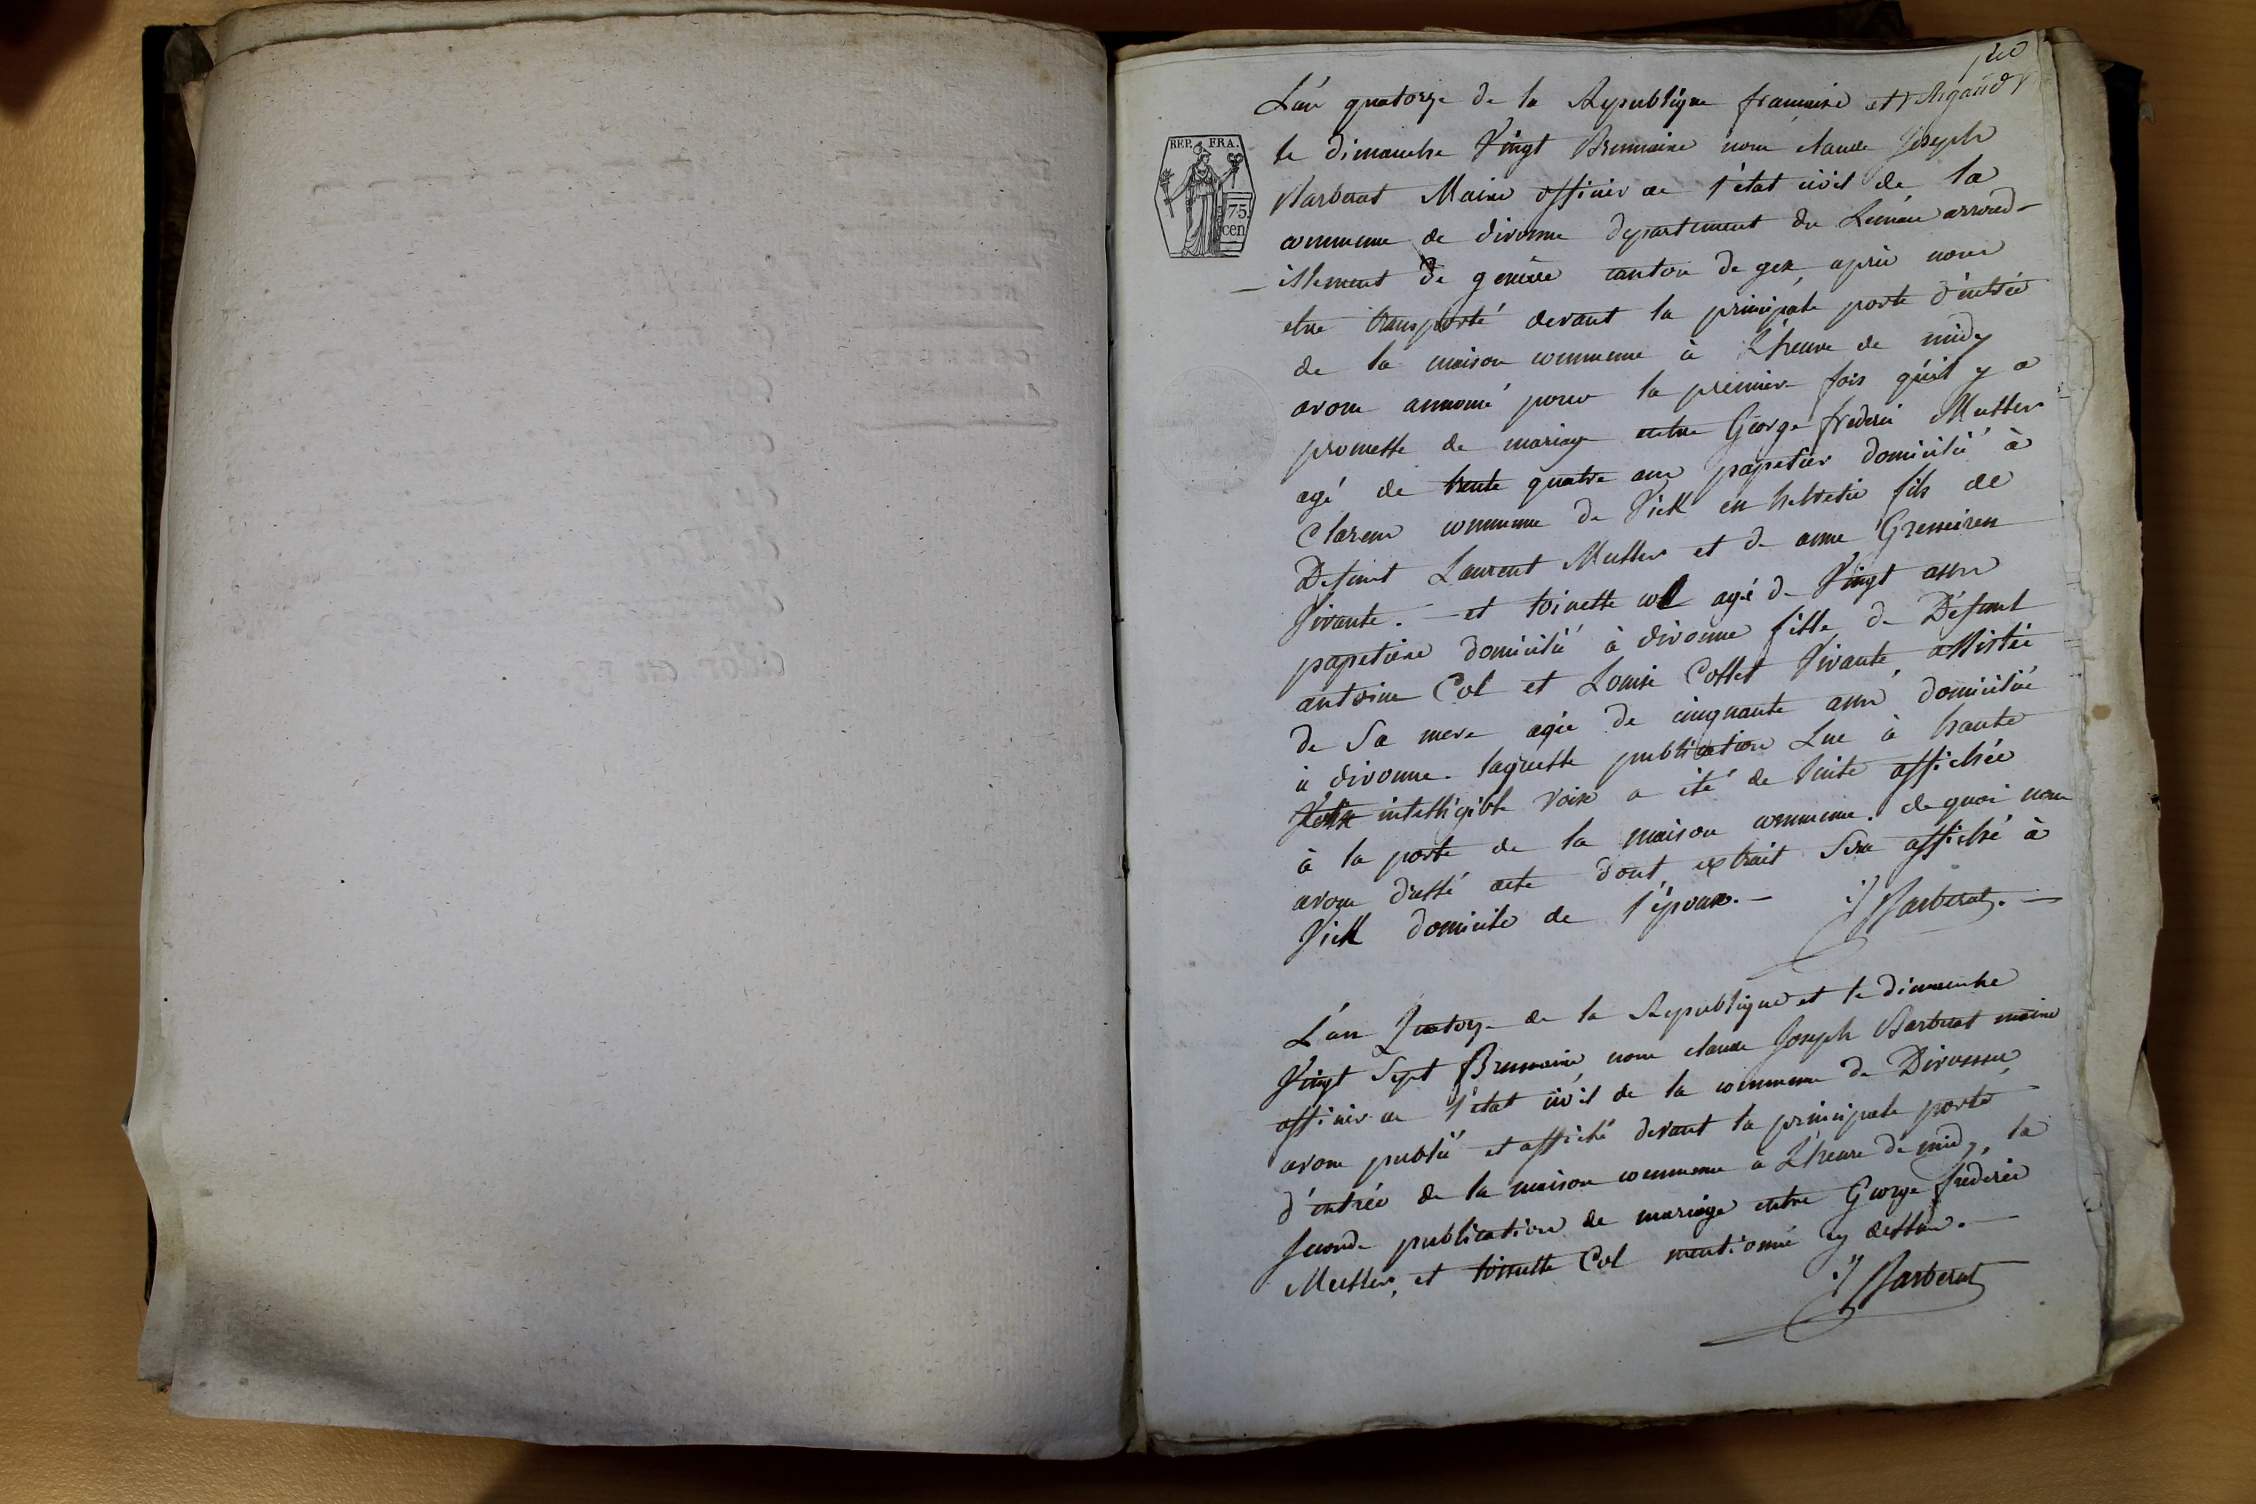 L'an quatorze de la Republique francaise et
le dimanche Vingt Brumaire nous claude Joseph
Barberat Maire officier de l'état civil de la
commune de divonne departement du Leman arrond-
REP. FRA.
75
cen
issement de genève canton de gex après nous
etre transporté devant la principale porte d'entrée
de la maison commune à L'heure de midy
avons annoncé pour la premiere fois qu'il y a
promesse de mariage entre George frederic Muller
agé de trente quatre ans papetier domicilié à
Clarens commune de Vick en helvetie fils de
Defunt Laurent Muller et de anne
Vivante. - et toinette col agé de Vingt ans
papetiere domicilié à divonne fille de Défunt
antoine Col et Louise Collet Vivante, assistée
de Sa mere agée de cinquante ans domiciliée
à divonne. laquelle publication Lue à haute
intelligible voix a été de Suite affichée
à la porte de la maison commune. de quoi nous
avons dressé acte dont extrait Sera affiché à
Vick domicile de l'époux. - Barberat. -
L'an Quatorze de la Republique et le dimanche
Vingt Sept Brumaire nous claude Joseph Barberat maire
officier de l'état civil de la commune de Divonne,
avons publié et affiché devant la principale porte
d'entrée de la maison commune à L'heure de midy, la
seconde publication de mariage entre George frederic
Muller, et toinette Col mentionné cy dessus. -
Barberat